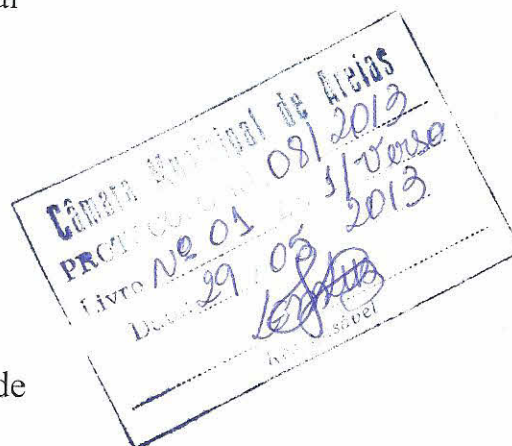 Câmara Municipal de Areias
08/2013
Livro Nº 01 1/Verso
29 05 2013
de